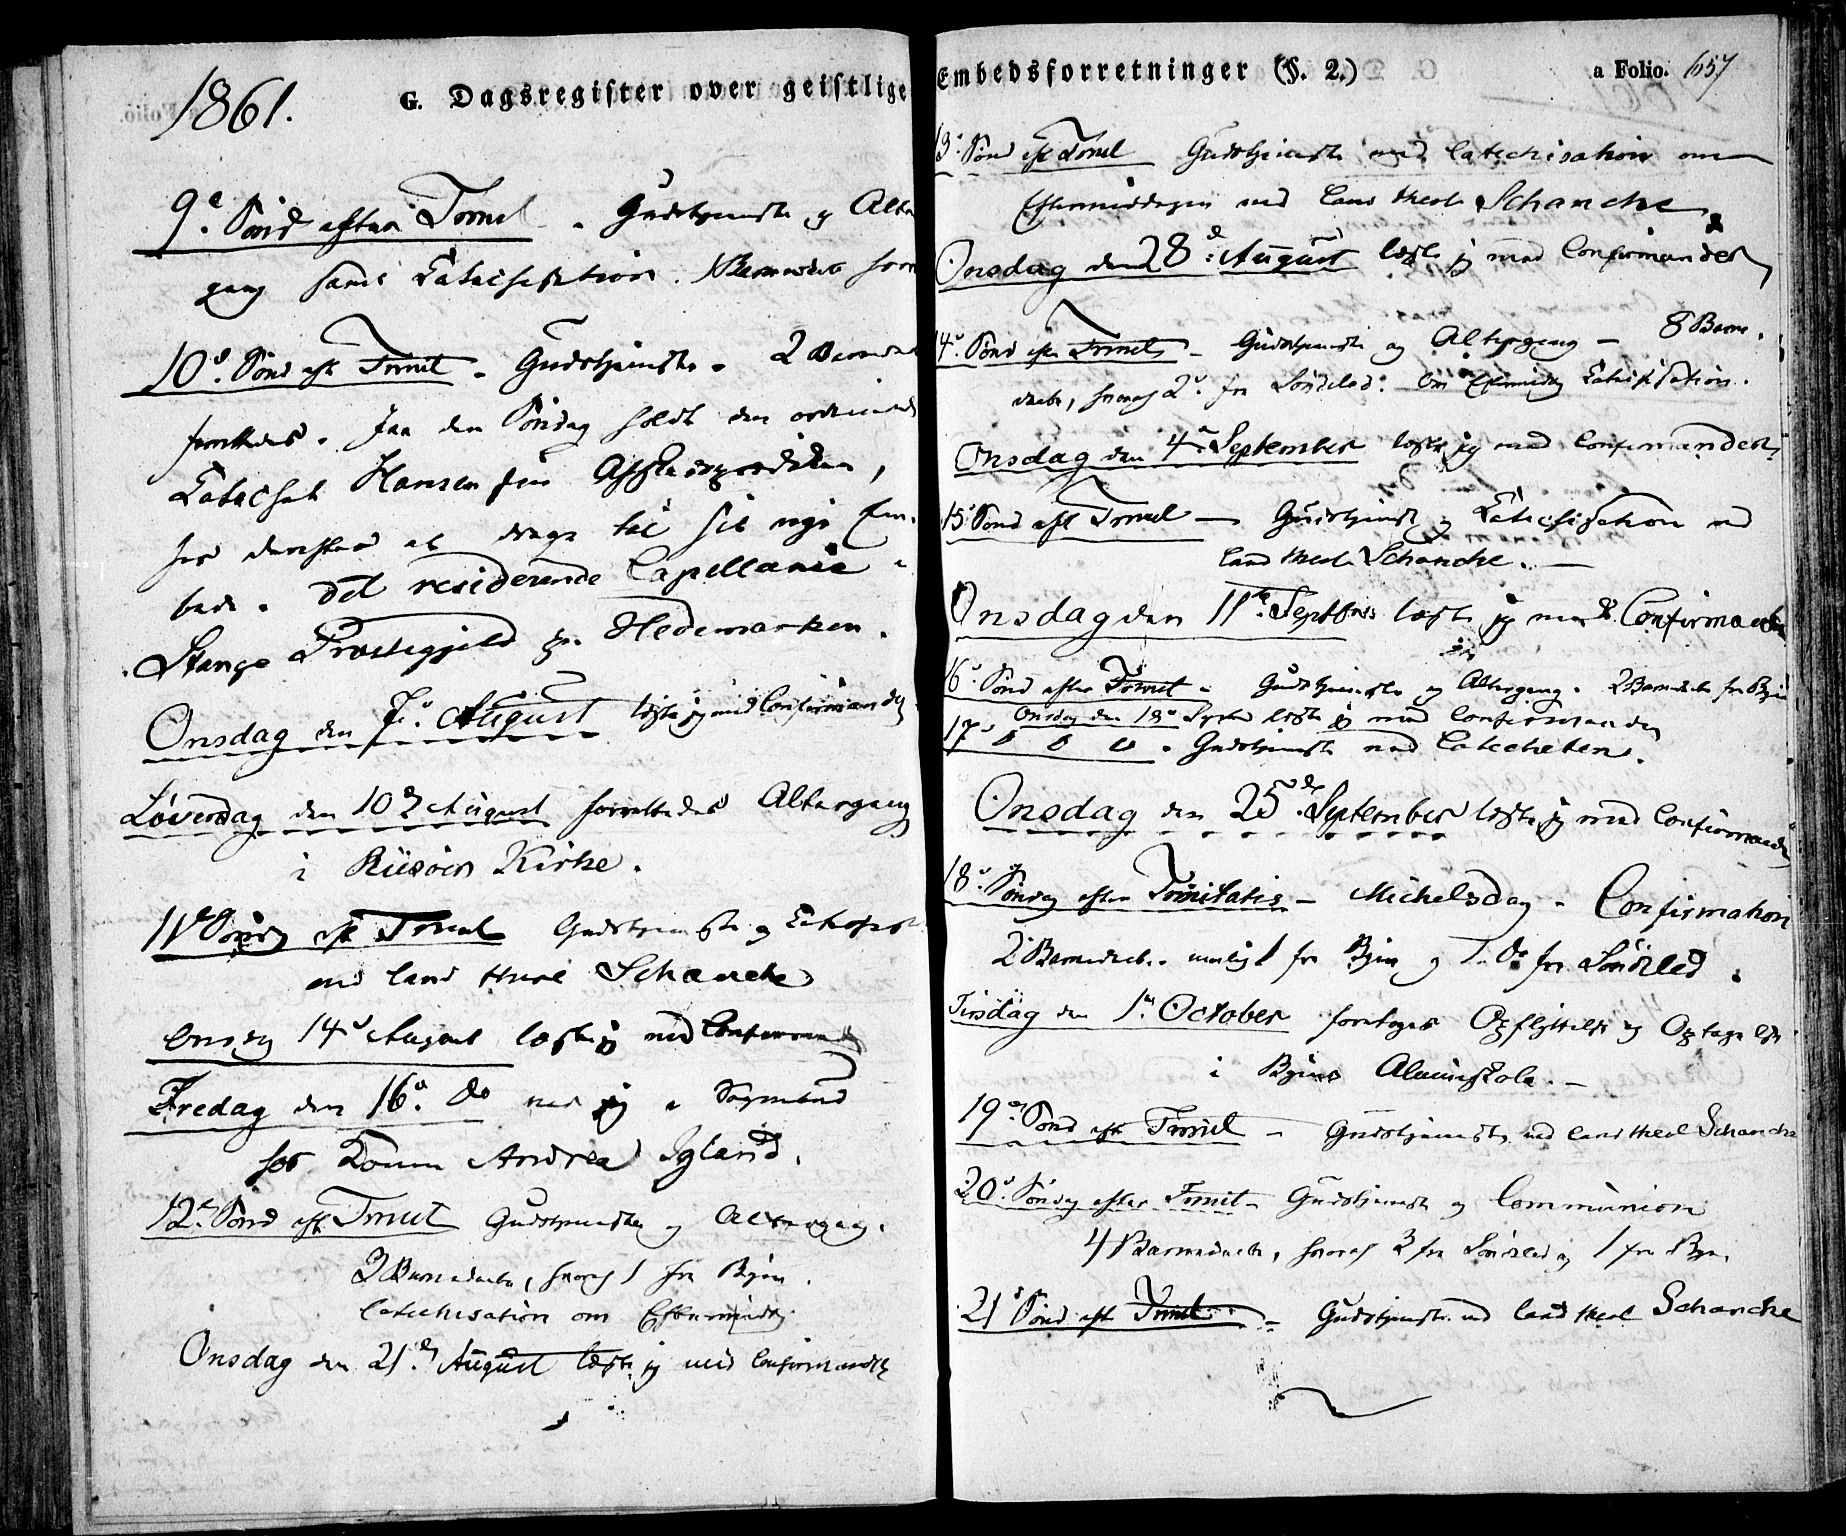 1861.
G. Dagsregister over geistlige
9e Sønd efter Trinit. Gudstjeneste og Alter
gang samt Catechisation. Barnedaab forr
10de Sønd eft Trinit. Gudstjeneste. 2 Barnedaab
forrettedes. Paa den Søndag holdt den ordinerede
Catechet Hansen sin Afskedsprædiken,
for derefter at drage til sit nye Em-
bede. Det residerende Capellanie
Stange Præstegjeld på Hedemarken.
Onsdag den 7de August læste jeg med Confirmander
Løverdag den 10de August forrettedes Altergang
i Riisöers Kirke.
11te Sønd eft Trinit Gudstjeneste og
ved Cand theol Schancke
Onsdag 14de August læste jeg med Confirmander
Fredag den 16de Do var jeg i
for Andrea Igland.
12te Sønd eft Trinit Gudstjeneste og Altergang.
3 Barnedaab, hvoraf 1 fra Byen.
Catechisation om Eftermiddag
Onsdag den 21de August læste jeg med Confirmander
Embedsforretninger (§. 2.)
a Folio. 657
13de Sønd eft Trinit Gudstjeneste med Catechisation om
Eftermiddagen ved Cand theol Schancke.
Onsdag den 28de August læste jeg med Confirmander
14de Sønd efter Trinit. Gudstjeneste og Altergang — 8 Barne-
daab, hvoraf 2de fra Søndeled. Om Eftermidg Catechisation.
Onsdag den 4de September læste jeg med Confirmander
15de Sønd eft Trinit — Gudstjenest og Catechisation ved
Cand theol Schancke. —
Onsdag den 11te Septbr læste jeg med Confirmander
16de Sønd efter Trinit. Gudstjeneste og Altergang. 2 Barnedaab fra Byen
Onsdag den 18de Septbr læste jeg med Confirmander
17de Gudstjeneste ved Catecheten.
Onsdag den 25de September læste jeg med Confirmander
18de Søndag efter Trinitatis — Michelsdag. Confirmation
2 Barnedaab. nemlig 1 fra Byen og 1 Do fra Søndeled.
Tirsdag den 1ste October foretoges Opflyttelse og Optagelse
i Byens Almueskole. —
19de Sønd eft Trinit — Gudstjeneste ved Cand theol Schancke
20de Søndag efter Trinit. Gudstjeneste og Communion
4 Barnedaab, hvoraf 3 fra Søndeled og 1 fra Byen
21de Sønd eft Trinit — Gudstjeneste ved Cand theol Schancke